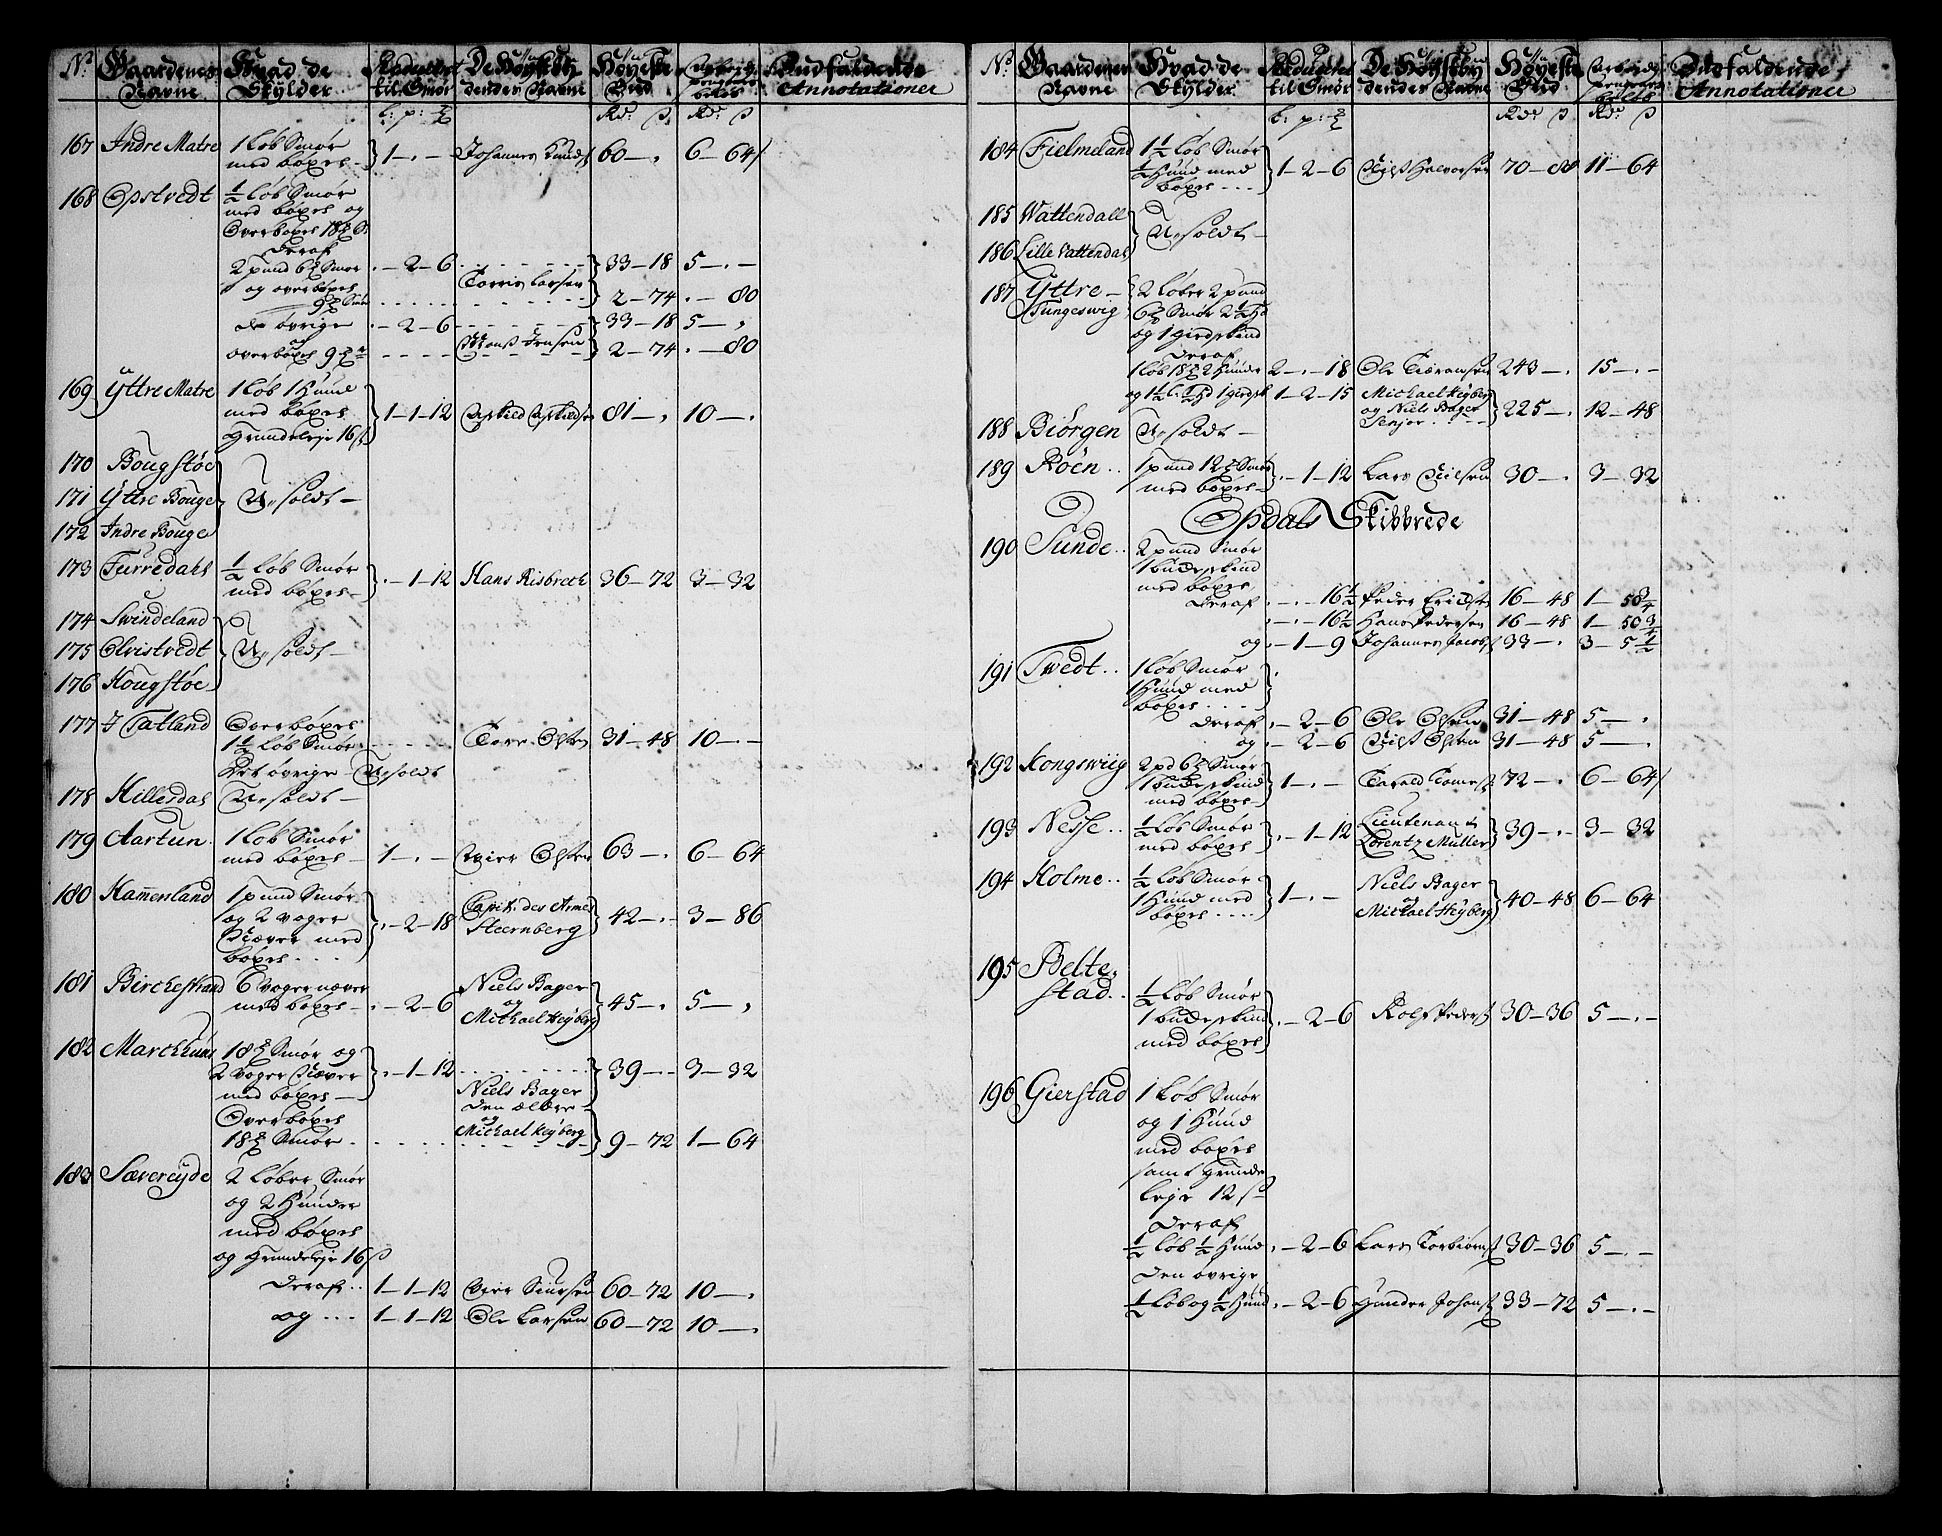 No Gaardenes Navne Hvad de Skylder Reducert til Smør De Høystbydendes Navne Høyeste Bud Indfaldende Annotationer
l: p: ℔ Rdr ß Rdr ß
167 Indre Matre 1 Løb Smør med bøxel 1 - . - Johannes Knuds 60 - . 6 - 64
168 Opstvedt ½ Løb Smør
med bøxel og
Overbøxel 18 ℔ S.
Deraf
2 pund 6 ℔ Smør . - 2 - 6 33 - 18 5 - . -
og overbøxel Torris Larsen
9 ℔ Smør 2 - 74 . - 80
De øvrige . - 2 - 6 33 - 18 5 - .
og Mons Jensen
overbøxel 9 ℔ 2 - 74 . - 80
169 Yttre Matre 1 Løb 1 Huud
med bøxel 1 - 1 - 12 81 - . 10 - .
Grundeleje 16 ß
170 Bougstøe
171 Yttre Bouge Usoldt
172 Indre Bouge
173 Furredahl ½ Løb Smør med bøxel . - 1 - 12 Hans Risbrech 36 - 72 3 - 32
174 Swindeland
175 Elvistvedt Usoldt
176 Hougstøe
177 Tatland Overbøxel
1½ Løb Smør Tore Olsen 31 - 48 10 - . -
Det øvrige Usoldt
178 Hillesdal Usoldt
179 Aartun 1 Løb Smør
med bøxel 1 - . - Olsen 63 - . 6 - 64
180 Hammerland 1 pund Smør
og 2 Voger . - 2 - 18 Capit: des Armes Steernberg 42 - . - 3 - 86
Næver med
bøxel
181 Birchestrand 6 Voger næver Niels Bager
med bøxel . - 2 - 6 og 45 - . 5 - .
Michael Heyberg
182 Marchhuus 18 ℔ Smør og
2 Voger Næver . - 1 - 12 39 - . - 3 - 32
med bøxel Niels Bager
Overbøxel den ældre og
18 ℔ Smør Michael Heyberg 9 - 72 1 - 64
183 Sævereyde 2 Løber Smør
og 2 Huuder
med bøxel
og Grundeleje 16 ß
Deraf 1 - 1 - 12 Siursen 60 - 72 10 - .
og 1 - 1 - 12 Ole Larsen 60 - 72 10 - .
No Gaardenes Navne Hvad de Skylder Reducert til Smør De Høystbydendes Navne Høyeste Bud Indfaldende Annotationer
l: p: ℔ Rdr ß Rdr ß
184 Fielmeland 1½ Løb Smør
½ Huud med 1 - 2 - 6 Niels Halvorsen 70 - 80 11 - 64
bøxel
185 Wattendall
Usoldt
186 Lille Vattendal
187 Yttre 2 Løber 2 pund
Tungeswig 6 ℔ Smør 2½ H
og 1 giedskind
Deraf
1 Løb 18 ℔ 2 Huuder 2 - . - 18 Ole 243 - . 15 - . -
og 1½ L. ½ Hd 1 giedsk 1 - 2 - 15 Michael Heyberg og Niels Bager Senior 225 - . 12 - 48
188 Biørgen Usoldt
189 Røen 1 pund 12 ℔ Smør
med bøxel . - 1 - 12 Lars Nielsen 30 - . 3 - 32
Opdals Skibbrede
190 Sunde 2 pund Smør
1 budeskind
med bøxel
Deraf . - . - 16½ Peder 16 - 48 1 - 50¾
. - . - 16½ Hans Pedersen 16 - 48 1 - 50¾
og . - 1 - 9 Johannes Jacobs 33 - . 3 - 5½
191 Twedt 1 Løb Smør
1 Huud med
bøxel
Deraf . - 2 - 6 Ole Olsen 31 - 48 5 - .
og . - 2 - 6 Niels Olsen 31 - 48 5 - .
192 Kongswiig 2 pd 6 ℔ Smør
1 budeskind 1 - . - 72 - . 6 - 64
med bøxel
193 Nesse ½ Løb Smør
med bøxel . - 1 - 12 Lieutenant Lorentz Müller 39 - . - 3 - 32
194 Holme ½ Løb Smør Niels Bager
1 Huud med 1 - . - og 40 - 48 6 - 64
bøxel Michael Heyberg
195 Belte-
stad ½ Løb Smør
1 budeskind . - 2 - 6 Rolf Peders 30 - 36 5 - . -
med bøxel
196 Gierstad 1 Løb Smør
og 1 Huud
med bøxel
samt Grunde
leje 12 ß
Deraf
½ Løb ½ Huud . - 2 - 6 Lars Torbiørns 30 - 36 5 - . -
den øvrige
½ Løb og ½ Huud . - 2 - 6 Gunder Johans 33 - 72 5 - . -